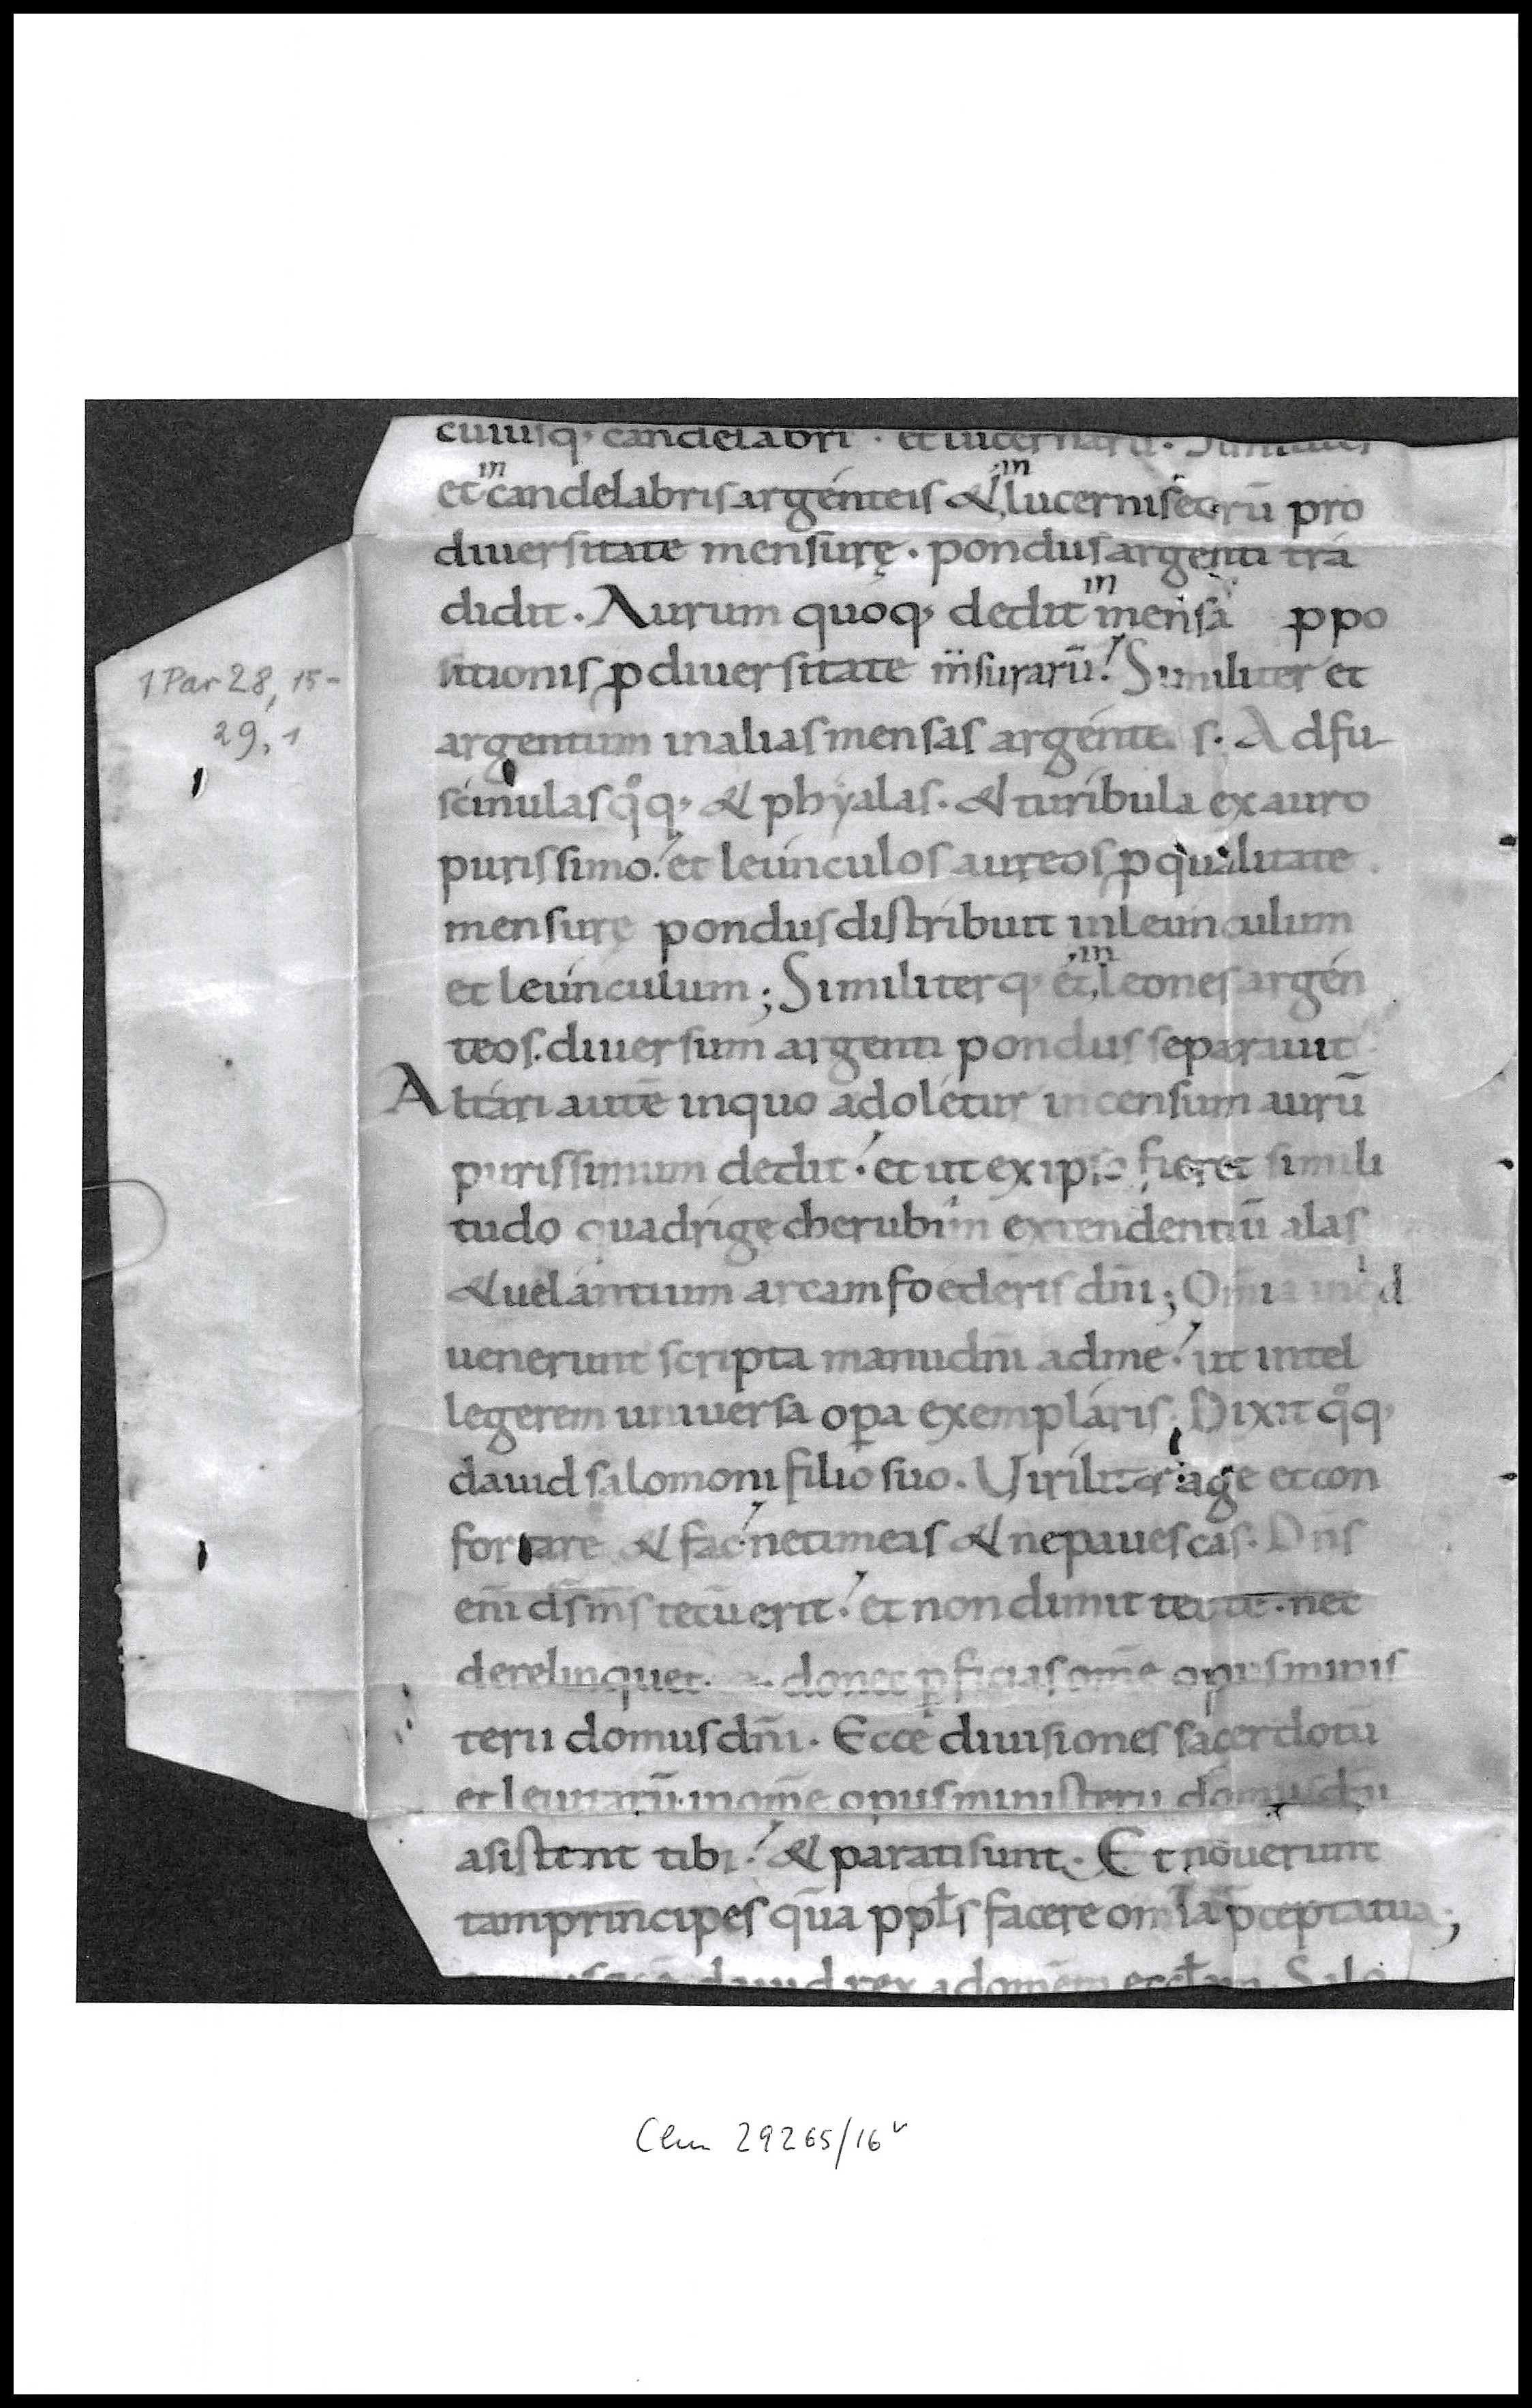 cuiusq; candelabri · et lucernarū. Similiter
et in candelabris argenteis & in lucernis eorū pro
diuersitate mensurę · pondus argenti tra
didit. Aurum quoq; dedit in mensā ppo
sitionis p diuersitate msurarū! Similiter et
argentum in alias mensas argente s. Ad fu
scinulas qoq; & phyalas. & turibula ex auro
purissimo! et leunculos aureos p qualitate
mensurę pondus distribuit in leunculum
et leunculum; Similiterq; et in leones argen
teos. diuersum argenti pondus separauit
Altari autē in quo adoletur incensum aurū
purissimum dedit! et ut ex ipso fieret simili
tudo quadrigę cherubim extendentiū alas
& uelantium arcam foederis dn̄i; Om̄ia inqd
uenerunt scripta manu dn̄i ad me! ut intel
legerem uniuersa opa exemplaris. Dixit qoq;
dauid salomoni filio suo. Uiriliter age et con
fortare & fac! ne timeas & ne pauescas. Dn̄s
eni ds̄ ms̄ tecū erit! et non dimittet te. nec
derelinquet donec pficias om̄e opus minis
terii domus dn̄i. Ecce diuisiones sacerdotū
et leuitarū. in om̄e opus ministerii domus dn̄i
asistent tibi! & parati sunt. Et nouerunt
tam principes qua ppl̄s facere om̄ia p̄cepta tua;
dauid rex ad om̄em eccl̄am. Salo
1 Par 28, 15-
29, 1
Clm 29265/16v